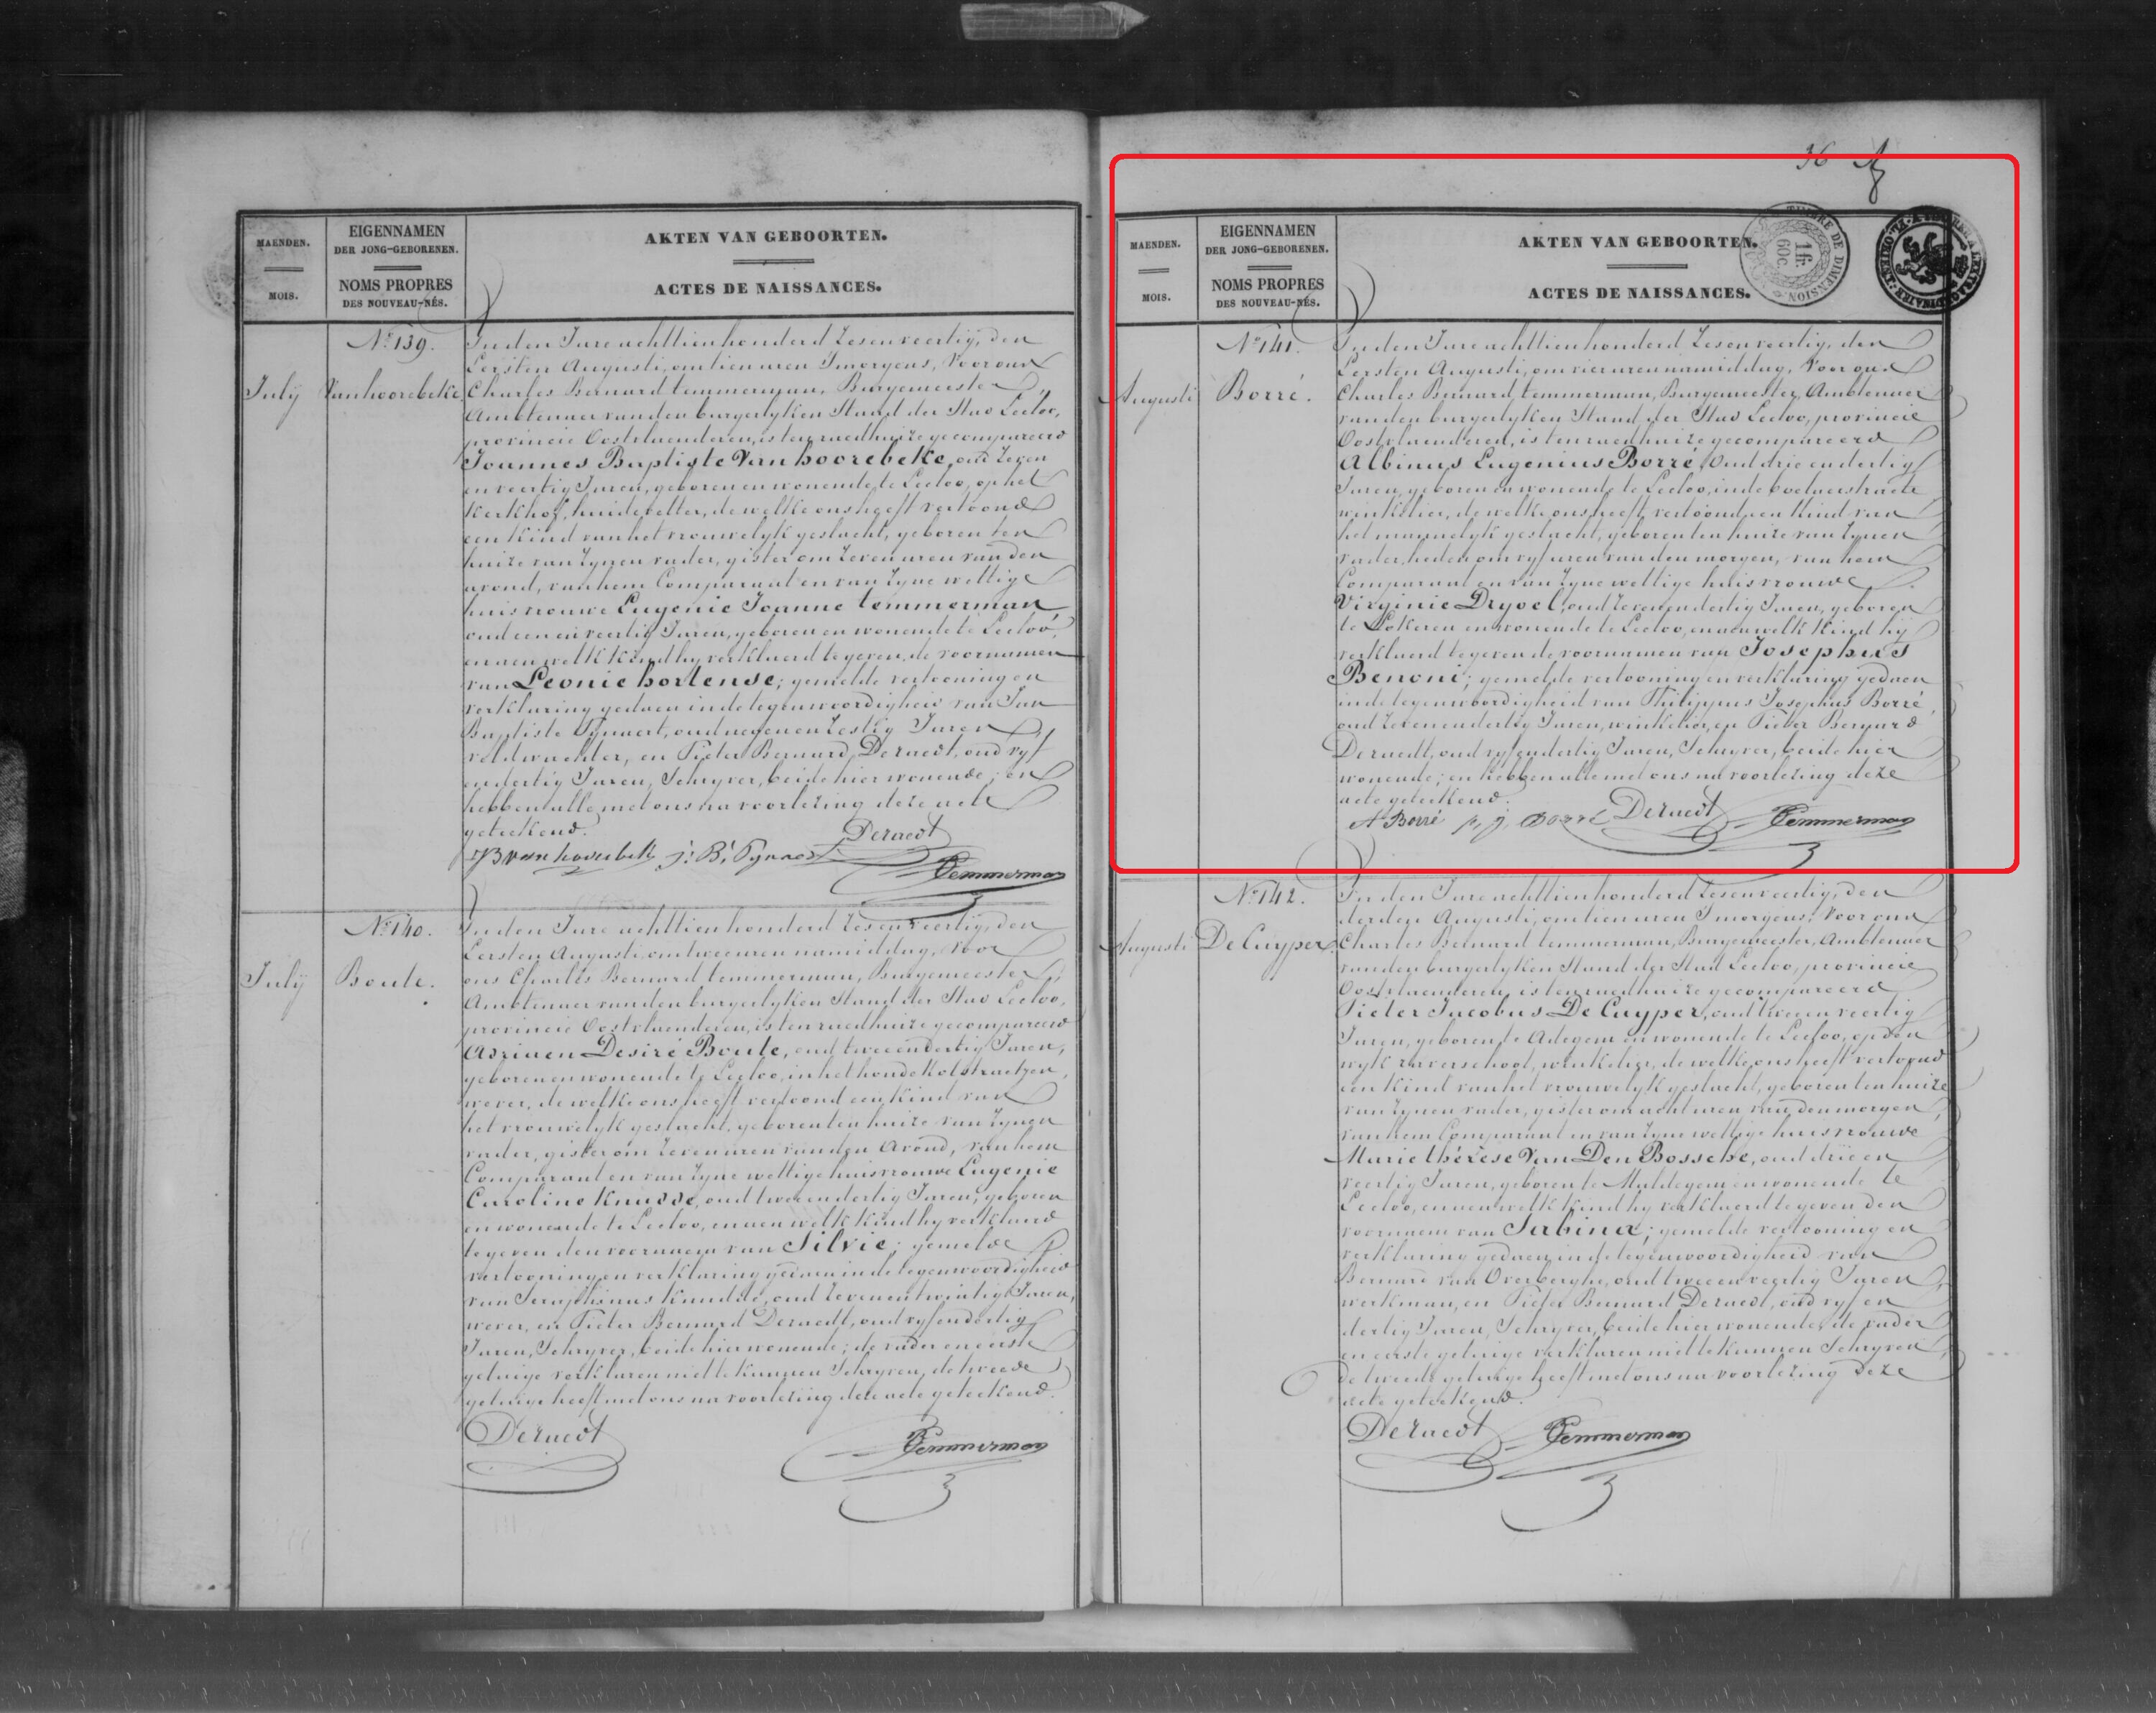 MAENDEN.
MOIS.
EIGENNAMEN
DER JONG-GEBORENEN.
NOMS PROPRES
DES NOUVEAU-NÉS.
AKTEN VAN GEBOORTEN.
ACTES DE NAISSANCES.
No. 139.
July
Vanhoorebeke
In den Jare achttien honderd Zesenveertig, den
Eersten Augusti, om tien uren Smorgens, Voor ons
Charles Bernard temmerman, Burgemeester,
Ambtenaer van den burgerlyken Stand der Stad Eecloo,
provincie Oostvlaenderen, is ten raedhuize gecompareerd
Joannes Baptiste Vanhoorebeke, oud zeven
en veertig Jaren, geboren en wonende te Eecloo, op het
Kerkhof, huidevetter, dewelke ons heeft vertoond
een kind van het vrouwelyk geslacht, geboren ten
huize van zynen vader, gister om zeven uren van den
avond, van hem Comparant en van zyne wettige
huisvrouwe Eugenie Joanne temmerman,
oud een en veertig Jaren, geboren en wonende te Eecloo,
en aen welk Kind hy verklaerd te geven de voornamen
van Leonie hortense; gemelde vertooning en
verklaring gedaen in de tegenwoordigheid van Jan
Baptiste Tynaert, oud negen en Zestig Jaren
veldwachter, en Pieter Bernard Deraedt, oud vyf
en dertig Jaren, Schryver, beide hier wonende; en
hebben alle met ons na voorlezing deze acte
geteekend.
JB vanhoorebeke J: B: Tynaert Deraedt
Temmerman
No. 140.
July
Boute.
In den Jare achttien honderd Zesenveertig, den
Eersten Augusti, om twee uren namiddag, Voor
ons Charles Bernard temmerman, Burgemeester,
Ambtenaer van den burgerlyken Stand der Stad Eecloo,
provincie Oostvlaenderen, is ten raedhuize gecompareerd
Adriaen Desiré Boute, oud twee en dertig Jaren,
geboren en wonende te Eecloo, in het hondekotstraetjen,
wever, dewelke ons heeft vertoond een kind van
het vrouwelyk geslacht, geboren ten huize van zynen
vader, gister om zeven uren van den Avond, van hem
Comparant en van zyne wettige huisvrouwe Eugenie
Caroline Knudde, oud twee en dertig Jaren, geboren
en wonende te Eecloo, en aen welk Kind hy verklaerd
te geven den voornaem van Silvie; gemelde
vertooning en verklaring gedaen in de tegenwoordigheid
van Seraphinus Knudde, oud zeven en twintig Jaren,
wever, en Pieter Bernard Deraedt, oud vyf en dertig
Jaren, Schryver, beide hier wonende; de vader en eerste
getuige verklaren niet te kunnen Schryven, de tweede
getuige heeft met ons na voorlezing deze acte geteekend.
Deraedt Temmerman
36
MAENDEN.
MOIS.
EIGENNAMEN
DER JONG-GEBORENEN.
NOMS PROPRES
DES NOUVEAU-NÉS.
AKTEN VAN GEBOORTEN.
ACTES DE NAISSANCES.
TIMBRE DE DIMENSION
1 fr.
60 c.
No. 141.
Augusti
Borré.
In den Jare achttien honderd Zesenveertig, den
Eersten Augusti, om vier uren namiddag, Voor ons
Charles Bernard temmerman, Burgemeester, Ambtenaer
van den burgerlyken Stand der Stad Eecloo, provincie
Oostvlaenderen, is ten raedhuize gecompareerd
Albinus Eugenius Borré, Oud drie en dertig
Jaren, geboren en wonende te Eecloo, in de boelaerstraete
winkelier, dewelke ons heeft vertoond een Kind van
het mannelyk geslacht, geboren ten huize van zynen
vader, heden om vyf uren van den morgen, van hem
Comparant en van zyne wettige huisvrouwe
Virginie Dryoel, oud zeven en dertig Jaren, geboren
te Lokeren en wonende te Eecloo, en aen welk Kind hy
verklaerd te geven de voornamen van Josephus
Benoni; gemelde vertooning en verklaring gedaen
in de tegenwoordigheid van Philippus Josephus Borré,
oud zeven en dertig Jaren, winkelier, en Pieter Bernard
Deraedt, oud vyf en dertig Jaren, Schryver, beide hier
wonende; en hebben alle met ons na voorlezing deze
acte geteekend.
A Borré p. j. Borré Deraedt Temmerman
No. 142.
Augusti
De Cuyper.
In den Jare achttien honderd Zesenveertig, den
derden Augusti, om tien uren Smorgens, Voor ons
Charles Bernard temmerman, Burgemeester, Ambtenaer
van den burgerlyken Stand der Stad Eecloo, provincie
Oostvlaenderen, is ten raedhuize gecompareerd
Pieter Jacobus De Cuyper, oud twee en veertig
Jaren, geboren te Adegem en wonende te Eecloo, op den
wyk raverschoot, winkelier, dewelke ons heeft vertoond
een kind van het vrouwelyk geslacht, geboren ten huize
van zynen vader, gister om acht uren van den morgen,
van hem Comparant en van zyne wettige huisvrouwe
Marie thérèse Van Den Bossche, oud drie en
veertig Jaren, geboren te Maldegem en wonende te
Eecloo, en aen welk Kind hy verklaerd te geven den
voornaem van Sabina; gemelde vertooning en
verklaring gedaen in de tegenwoordigheid van
Bernard van Overberghe, oud twee en veertig Jaren,
werkman, en Pieter Bernard Deraedt, oud vyf en
dertig Jaren, Schryver, beide hier wonende, de vader
en eerste getuige verklaren niet te kunnen Schryven,
de tweede getuige heeft met ons na voorlezing deze
acte geteekend.
Deraedt Temmerman